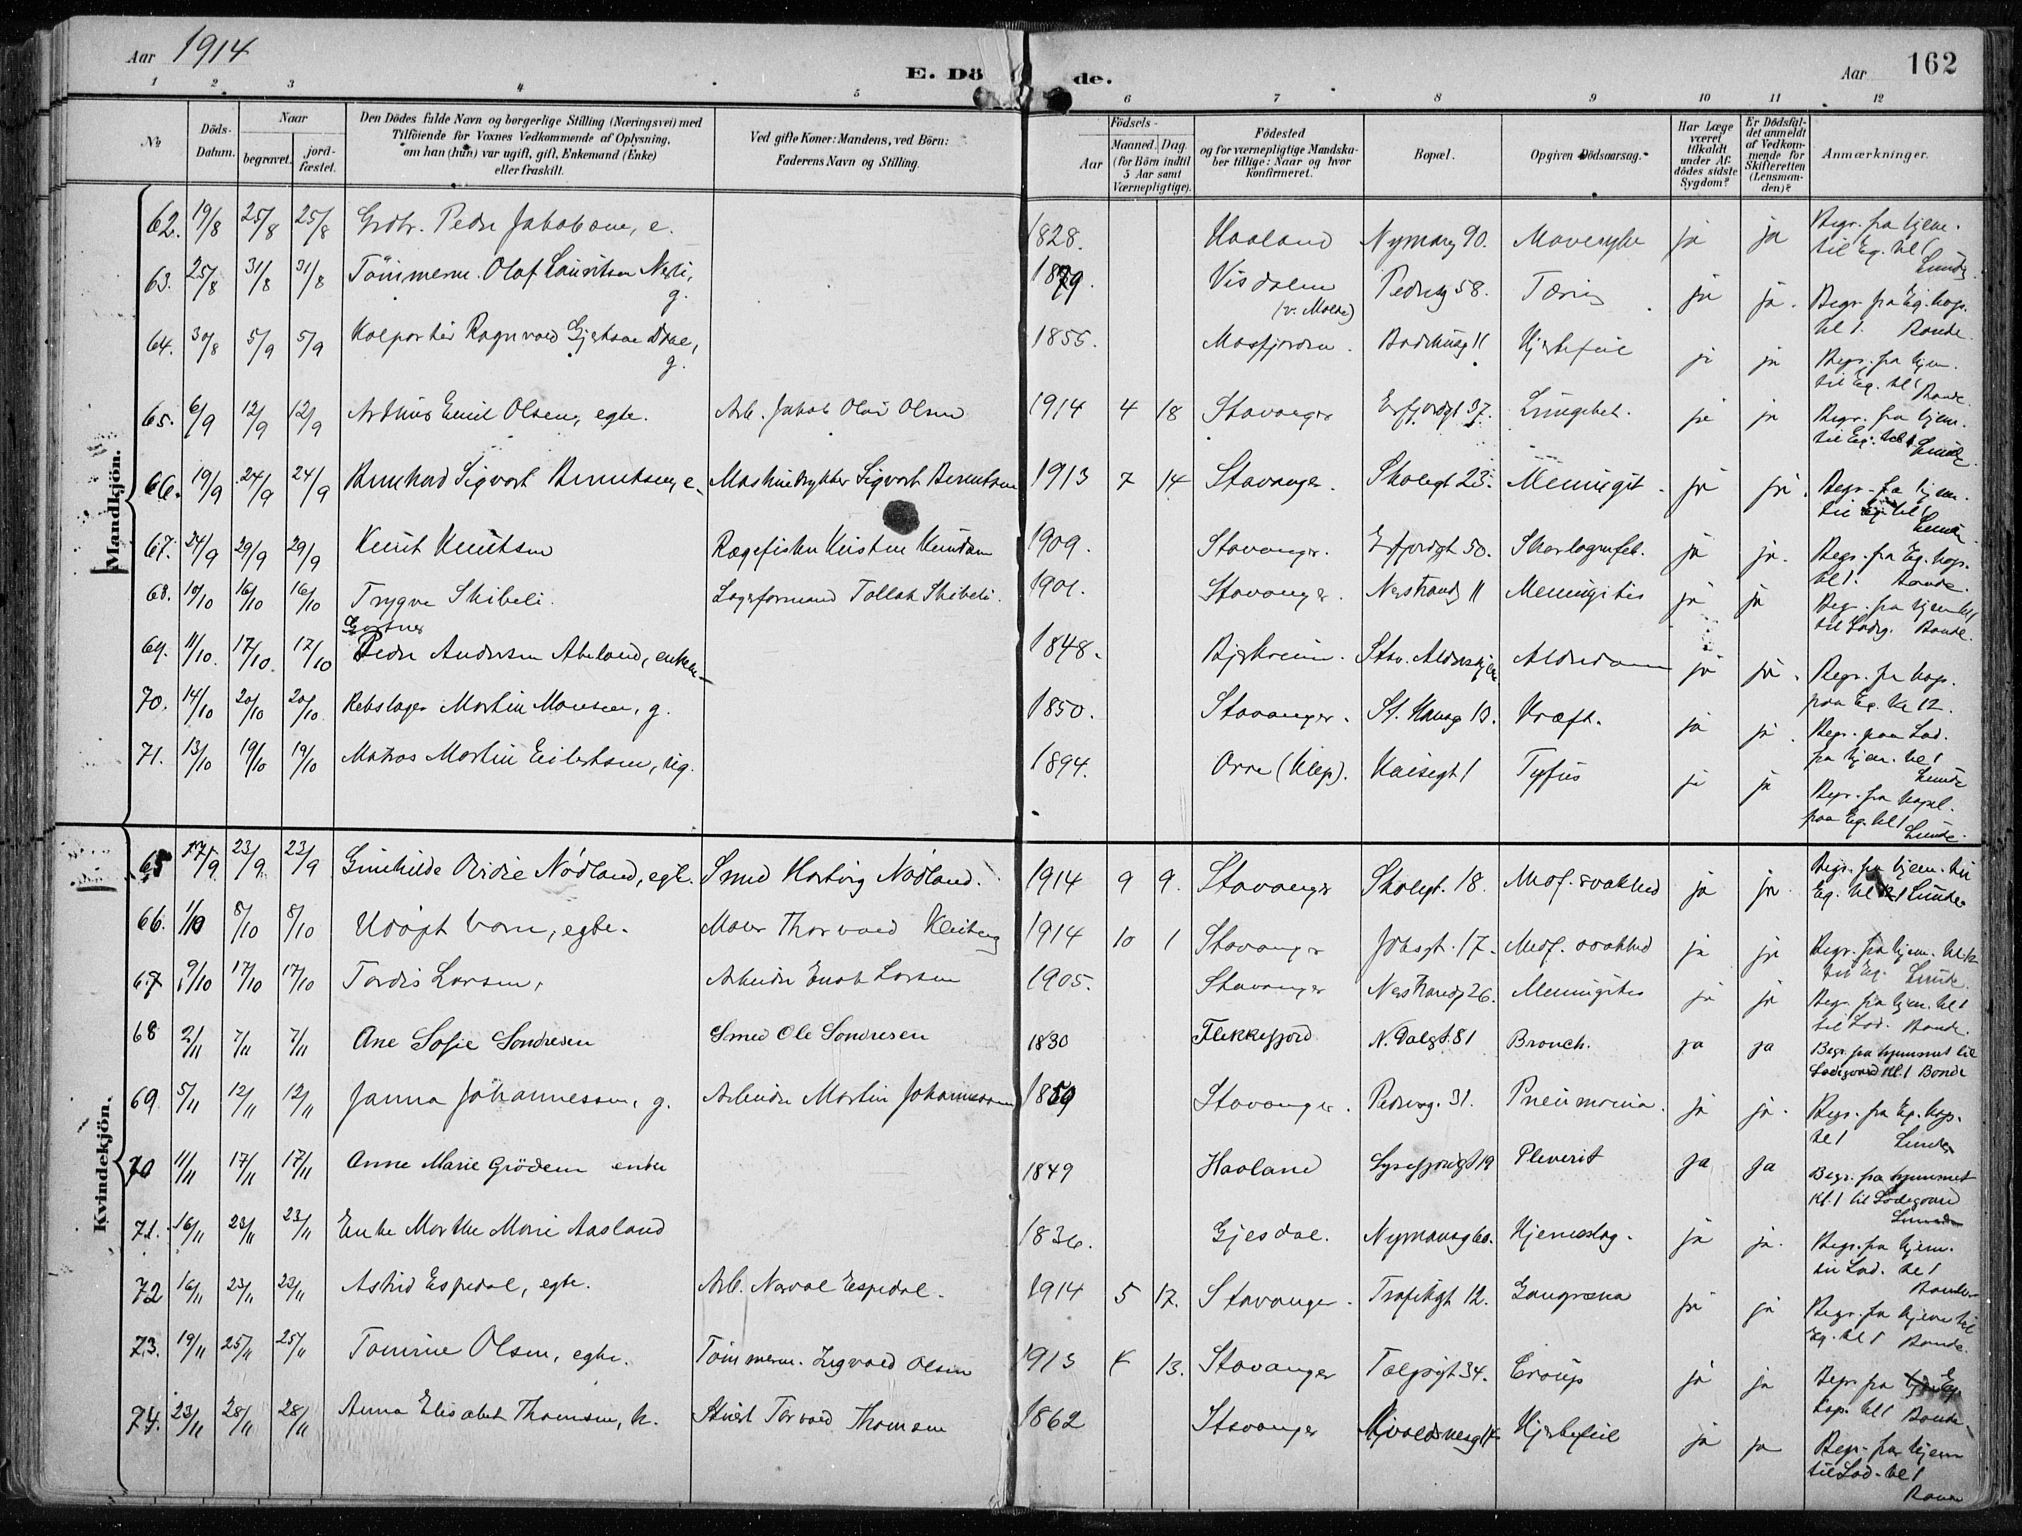 Aar 1914
E. Dö de.
Aar 162
1 2 3 4 5 6 7 8 9 10 11 12
No
Döds-Datum.
Naar
begravet.
jord-fæstet.
Den Dödes fulde Navn og borgerlige Stilling (Næringsvei) med
Tilföiende for Voxnes Vedkommende af Oplysning,
om han (hun) var ugift, gift, Enkemand (Enke)
eller fraskilt.
Ved gifte Koner: Mandens, ved Börn:
Faderens Navn og Stilling.
Födsels-
Aar
Maaned. Dag.
(for Börn indtil
5 Aar samt
Værnepligtige).
Födested
og for værnepligtige Mandska-
ber tillige: Naar og hvor
konfirmeret.
Bopæl.
Opgiven Dödsaarsag.
Har Læge
været
tilkaldt
under Af-
dödes sidste
Sygdom?
Er Dödsfal-
det anmeldt
af Vedkom-
mende for
Skifteretten
(Lensman-
den)?
Anmærkninger.
Mandkjön.
62. 19/8 25/8 25/8 Peder Jakobsen, e. 1828. Haaland 90. Mavesyke ja ja Begr. fra hjem. til Eg. kl 1 Lunde
63. 25/8 31/8 31/8 Tömmerm. Olaf Lauritsen g. 1879. Visdalen (v. Molde) Pedersg 58. ja ja. Begr. fra Eg. hosp. kl 1. Bonde.
64. 30/8 5/9 5/9 Kolportör Ragnvald Gjertsen g. 1855. Masfjorden. Badehusg 11 Hjertefeil ja ja Begr. fra hjem. til Eg. kl 1 Bonde.
65. 6/9 12/9 12/9 Arthur Emil Olsen, egte. Arb. Jakob Olai Olsen 1914 4 18 Stavanger Erfjordgt 37. Lungebet. ja ja Begr. fra hjem. til Eg. kl 1 Lunde.
66. 19/9 24/9 24/9 Bernhard Sigvart Berentsen, e. Maskintrykker Sigvart Berentsen 1913 7 14 Stavanger. Skolegt 23. Meningit. ja ja. Begr. fra hjem. til Eg kl 1 Lunde
67. 24/9 29/9 29/9 Knut Knutsen 1909. Stavanger. Erfjordgt 50. Skarlagensfeb. ja ja. Begr. fra Eg. hosp. kl 1. Bonde.
68. 10/10 16/10 16/10 Trygve Skibeli. Lagerformand Tollak Skibeli. 1901. Stavanger. Nerstrandg 11 Meningites ja ja Begr. fra hjem kl 1 til Ladeg. Bonde.
69. 11/10. 17/10. 17/10 Gartner Peder Andersen Abeland, enkem. 1848. Bjerkreim. Stav. Aldershjem Alderdom ja ja. Begr. fra hosp. paa Eg. kl 12.
70. 14/10 20/10 20/10. Rebslager Martin Monsen, g. 1850. Stavanger. St. Hansg 13. Kræft. ja ja. Begr. paa Lad. fra hjem. kl 1 Lunde
71. 13/10 19/10 19/10 Matros Martin Eilertsen, ug. 1894. Orre (Klep). Kaisegt 1 Tyfus ja ja Begr. fra kapel. paa Eg. kl 1 Lunde.
Kvindekjön.
65 17/9 23/9 23/9 Gunhilde Ovidie Nödland, egte. Smed Hartvig Nödland. 1914 9 9. Stavanger Skolegt. 18. Medf. svakhed ja ja. Begr. fra hjem. til Eg. kl 1 Lunde
66. 1/10 8/10 8/10 Udöpt barn, egte. Maler Thorvald 1914 10 1 Stavanger 17. Medf. svakhed ja ja Begr. fra hjem. til Eg. Lunde.
67 9/10 17/10 17/10 Tordis Larsen, Arbeider Enok Larsen 1905. Stavanger Nerstrandg 26. Meningites ja ja Begr. fra hjem. kl 1 til Lad. Bonde.
68 2/11 7/11 7/11 Ane Sofie Sondresen Smed Ole Sondresen 1830 Flekkefjord N. Dalgt. 81 Bronch. ja ja Begr. fra hjemmet til Ladegaard kl. 1 Bonde
69 5/11 12/11 12/11 Janna Johannessen, g. Arbeider Martin Johannessen 1859 Stavanger. Pedersg. 31. Pneumonia. ja ja. Begr. fra Eg. hosp. kl 1 Lunde
70 11/11 17/11 17/11 Anne Marie Grödem enke 1849 Haaland Lysefjordgt 19 Pleverit ja ja Begr. fra hjemmet kl. 1 til Ladegaard Lunde
71. 16/11 23/11 23/11 Enke Marthe Marie Aasland 1836. Gjesdal. Nymansg 60. Hjerneslag. ja ja. Begr. fra hjem. til Lad. kl 1 Bonde
72 16/11 23/11 23/11 Astrid Espedal, egte. Arb. Espedal. 1914 5 17. Stavanger. Trafikgt 12. Gangræna ja ja Begr. fra hjem til Eg. kl 1 Bonde.
73. 19/11 25/11 25/11 Tomine Olsen, egte. Tömmerm. Ingvald Olsen 1913 13. Stavanger 34. Croup ja ja Begr. fra Eg hosp. kl 1 Bonde.
74. 23/11 28/11 28/11 Anna Elisabet Thomsen, Torvald Thomsen 1862 Stavanger Hjertefeil ja ja Begr. fra hjem til Lad. kl 1 Bonde